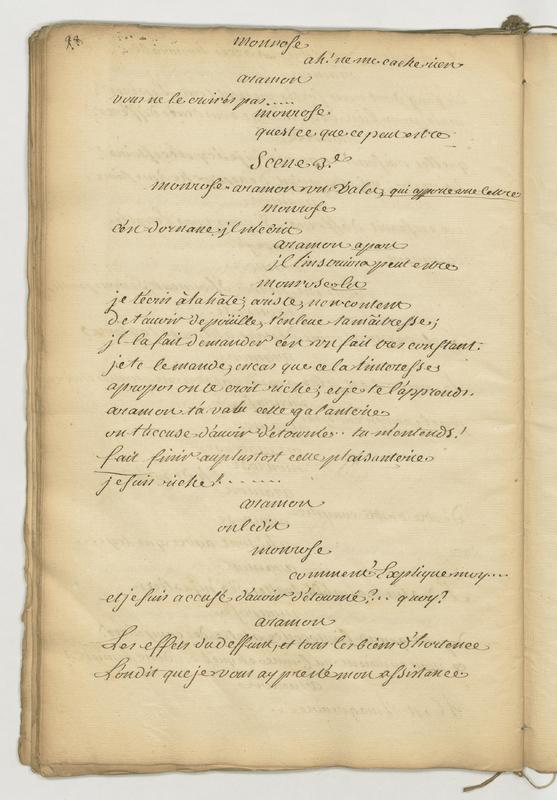 98
monrose
ah! ne me cache rien
aramon
vous ne le croirés pas.....
monrose
quest ce que ce peut estre
Scene 3.e
monrose aramon un Valet, qui apporte une lettre
monrose
c'en dornane, jl m'ecrit
aramon apart
jl l'instruira peut estre
monrose lit
je t'écris à la hate; ariste, non content
De t'avoir depoüille, t'enleve ta maitresse;
jl la fait demander c'en un fait tres constant.
je te le mande, encas que cela t'interesse
apropos on te croit riche; et je te l'apprends.
aramon t'a valu cette galanterie
on t'accuse d'avoir d'etourné.. tu m'entends!
fait finir auplustost cette plaisanterie
je suis riche!.......
aramon
on le dit
monrose
comment? Explique moy...
et je suis accusé d'avoir d'etourné?... quoy?
aramon
Les effets du deffunt, et tous les biens d'hortence
L'on dit que je vous ay presté mon assistance